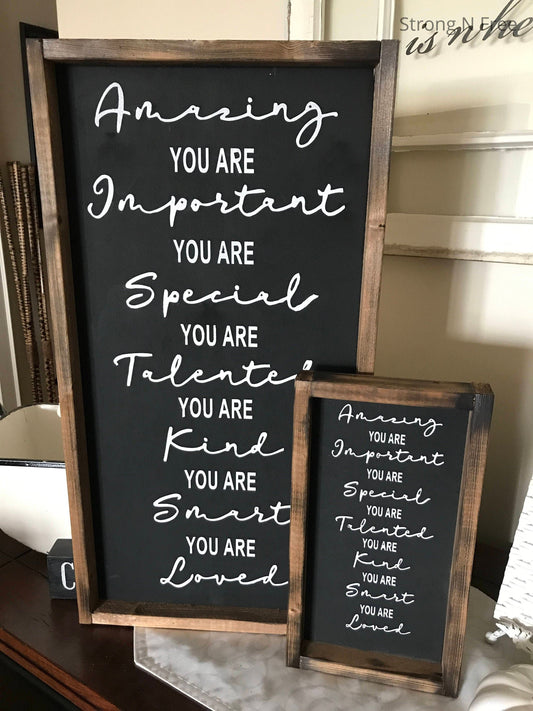 Strong N Free
is whe
Amazing
YOU ARE
Important
YOU ARE
Special
YOU ARE
Talented
YOU ARE
Kind
YOU ARE
Smart
YOU ARE
Loved
Amazing
YOU ARE
Important
YOU ARE
Special
YOU ARE
Talented
YOU ARE
Kind
YOU ARE
Smart
YOU ARE
Loved
C